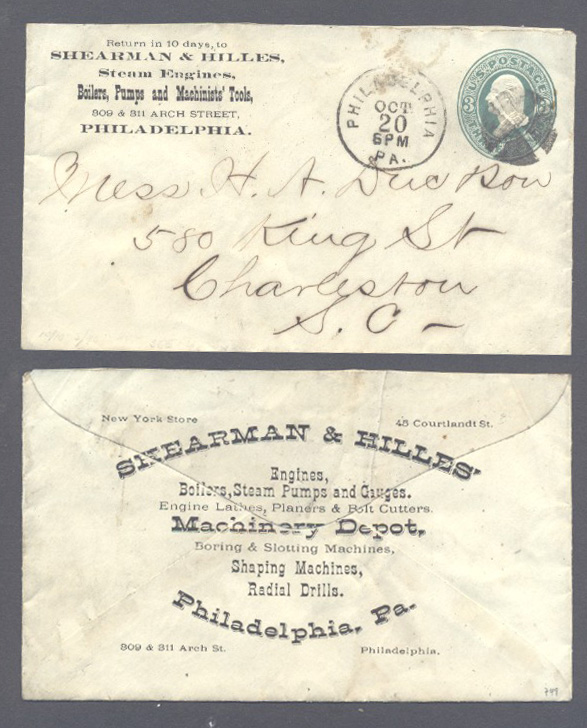 Return in 10 days, to
SHEARMAN & HILLES,
Steam Engines,
Boilers, Pumps and Machinists' Tools,
309 & 311 ARCH STREET,
PHILADELPHIA.
PHILADELPHIA
OCT
20
6PM
PA.
U.S. POSTAGE
Mess H. A. Duc & Son
580 King St
Charleston
S. C -
New York Store
45 Courtlandt St.
SHEARMAN & HILLES'
Engines,
Boilers, Steam Pumps and Gauges.
Engine Lathes, Planers & Bolt Cutters.
Machinery Depot,
Boring & Slotting Machines,
Shaping Machines,
Radial Drills.
Philadelphia, Pa.
309 & 311 Arch St.
Philadelphia.